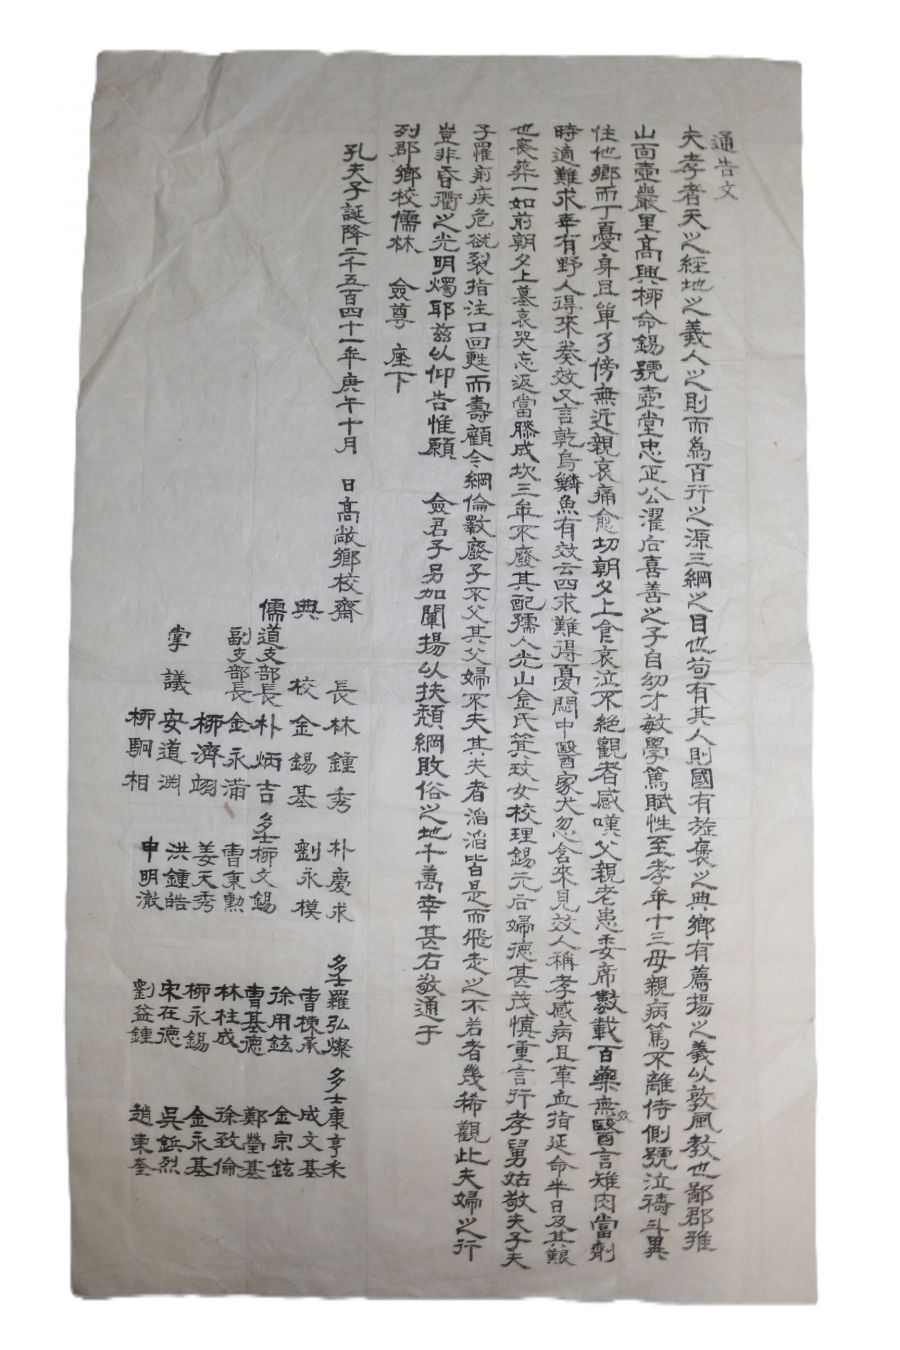 通告文
夫孝者天之經地之義人之則而為百行之源三綱之目也苟有其人則國有旌褒之典鄉有薦揚之義以敦風教也鄙郡雅
山面壺巖里高興柳命錫號壺堂忠正公濯后喜善之子自幼才敏學篤賦性至孝年十三母親病篤不離侍側號泣禱斗異
住他鄉而丁憂身且單孑傍無近親哀痛愈切朝夕上食哀泣不絕觀者感嘆父親老患委席數載百藥無效醫言雉肉當劑
時適難求幸有野人得來奏效又言乾烏鱗魚有效云四求難得憂悶中醫家犬忽含來見效人稱孝感病且革血指延命半日及其艱
也喪葬一如前朝夕上墓哀哭忘返當膝成坎三年不廢其配孺人光山金氏箕玟女校理錫元后婦德甚茂慎重言行孝舅姑敬夫子夫
子罹劇疾危欲裂指注口回甦而壽顧今綱倫斁廢子不父其父婦不夫其夫者滔滔皆是而飛走之不若者幾稀觀此夫婦之行
豈非昏衢之光明燭耶玆以仰告惟願 僉君子另加闡揚以扶頹綱敗俗之地千萬幸甚右敬通于
列郡鄉校儒林 僉尊 座下
孔夫子誕降二千五百四十一年庚午十月 日高敞鄉校齋
長林鍾秀 朴慶求 多士羅弘燦 多士康亨禾
典校金錫基 劉永模 曺棟承 成文基
儒道支部長朴炳吉 多士柳文錫 徐用鉉 金宗鉉
副支部長金永滿 曺秉勲 曺基德 鄭瑩基
柳濟翊 姜天秀 林柱成 徐致倫
掌議安道淵 洪鍾皓 柳永錫 金永基
柳駉相 申明澈 宋在德 吳鋲烈
劉益鍾 趙東奎